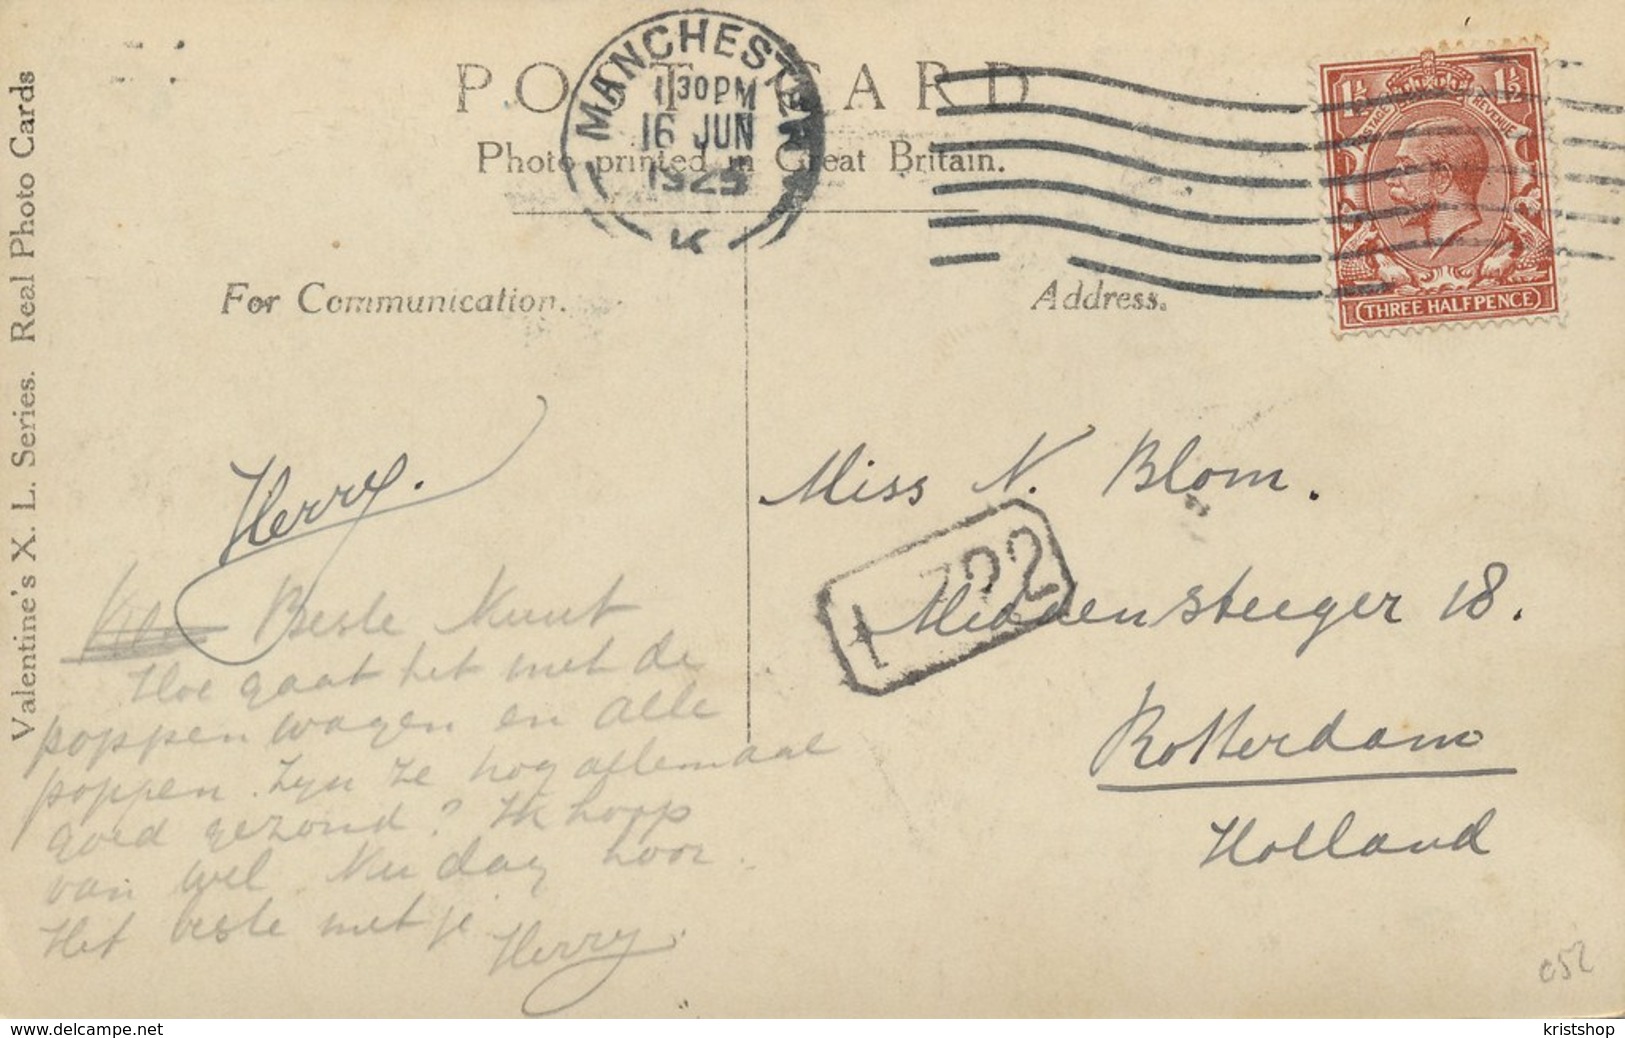 Valentine's X. L. Series. Real Photo Cards
POST CARD
Photo printed in Great Britain.
MANCHESTER
1 30 PM
16 JUN
1925
K
1½ 1½
POSTAGE REVENUE
THREE HALFPENCE
For Communication.
Address.
Herry.
Beste Nunt
Hoe gaat het met de
poppenwagen en alle
poppen. Zijn ze nog allemaal
goed gezond? Ik hoop
van wel. Nu dag hoor.
Het beste met je
Herry.
Miss N. Blom.
Middensteeger 18.
Rotterdam
Holland
052
www.delcampe.net
kristshop